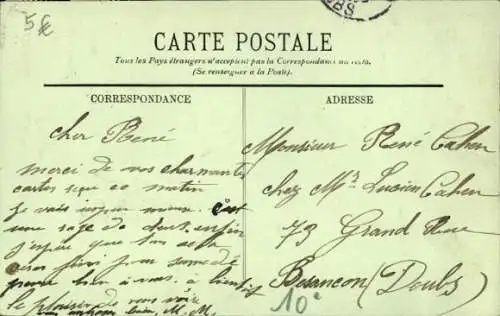 5€
UBS
CARTE POSTALE
Tous les Pays étrangers n'acceptent pas la Correspondance au recto.
(Se renseigner a la Poste).
CORRESPONDANCE
cher René
merci de vos charmantes
cartes reçue ce matin
je vais mieux c'est
une rage de dents enfin
j'espère que
sera fini pour samedi
à vous à bientôt
le plaisir de vous voir
M. M.
ADRESSE
Monsieur René Cahen
chez Mr Lucien Cahen
73 Grand Rue
Besançon (Doubs)
10e